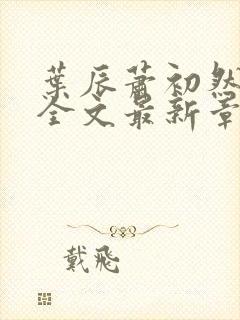 葉辰蕭初然
全文最新章
戴飛